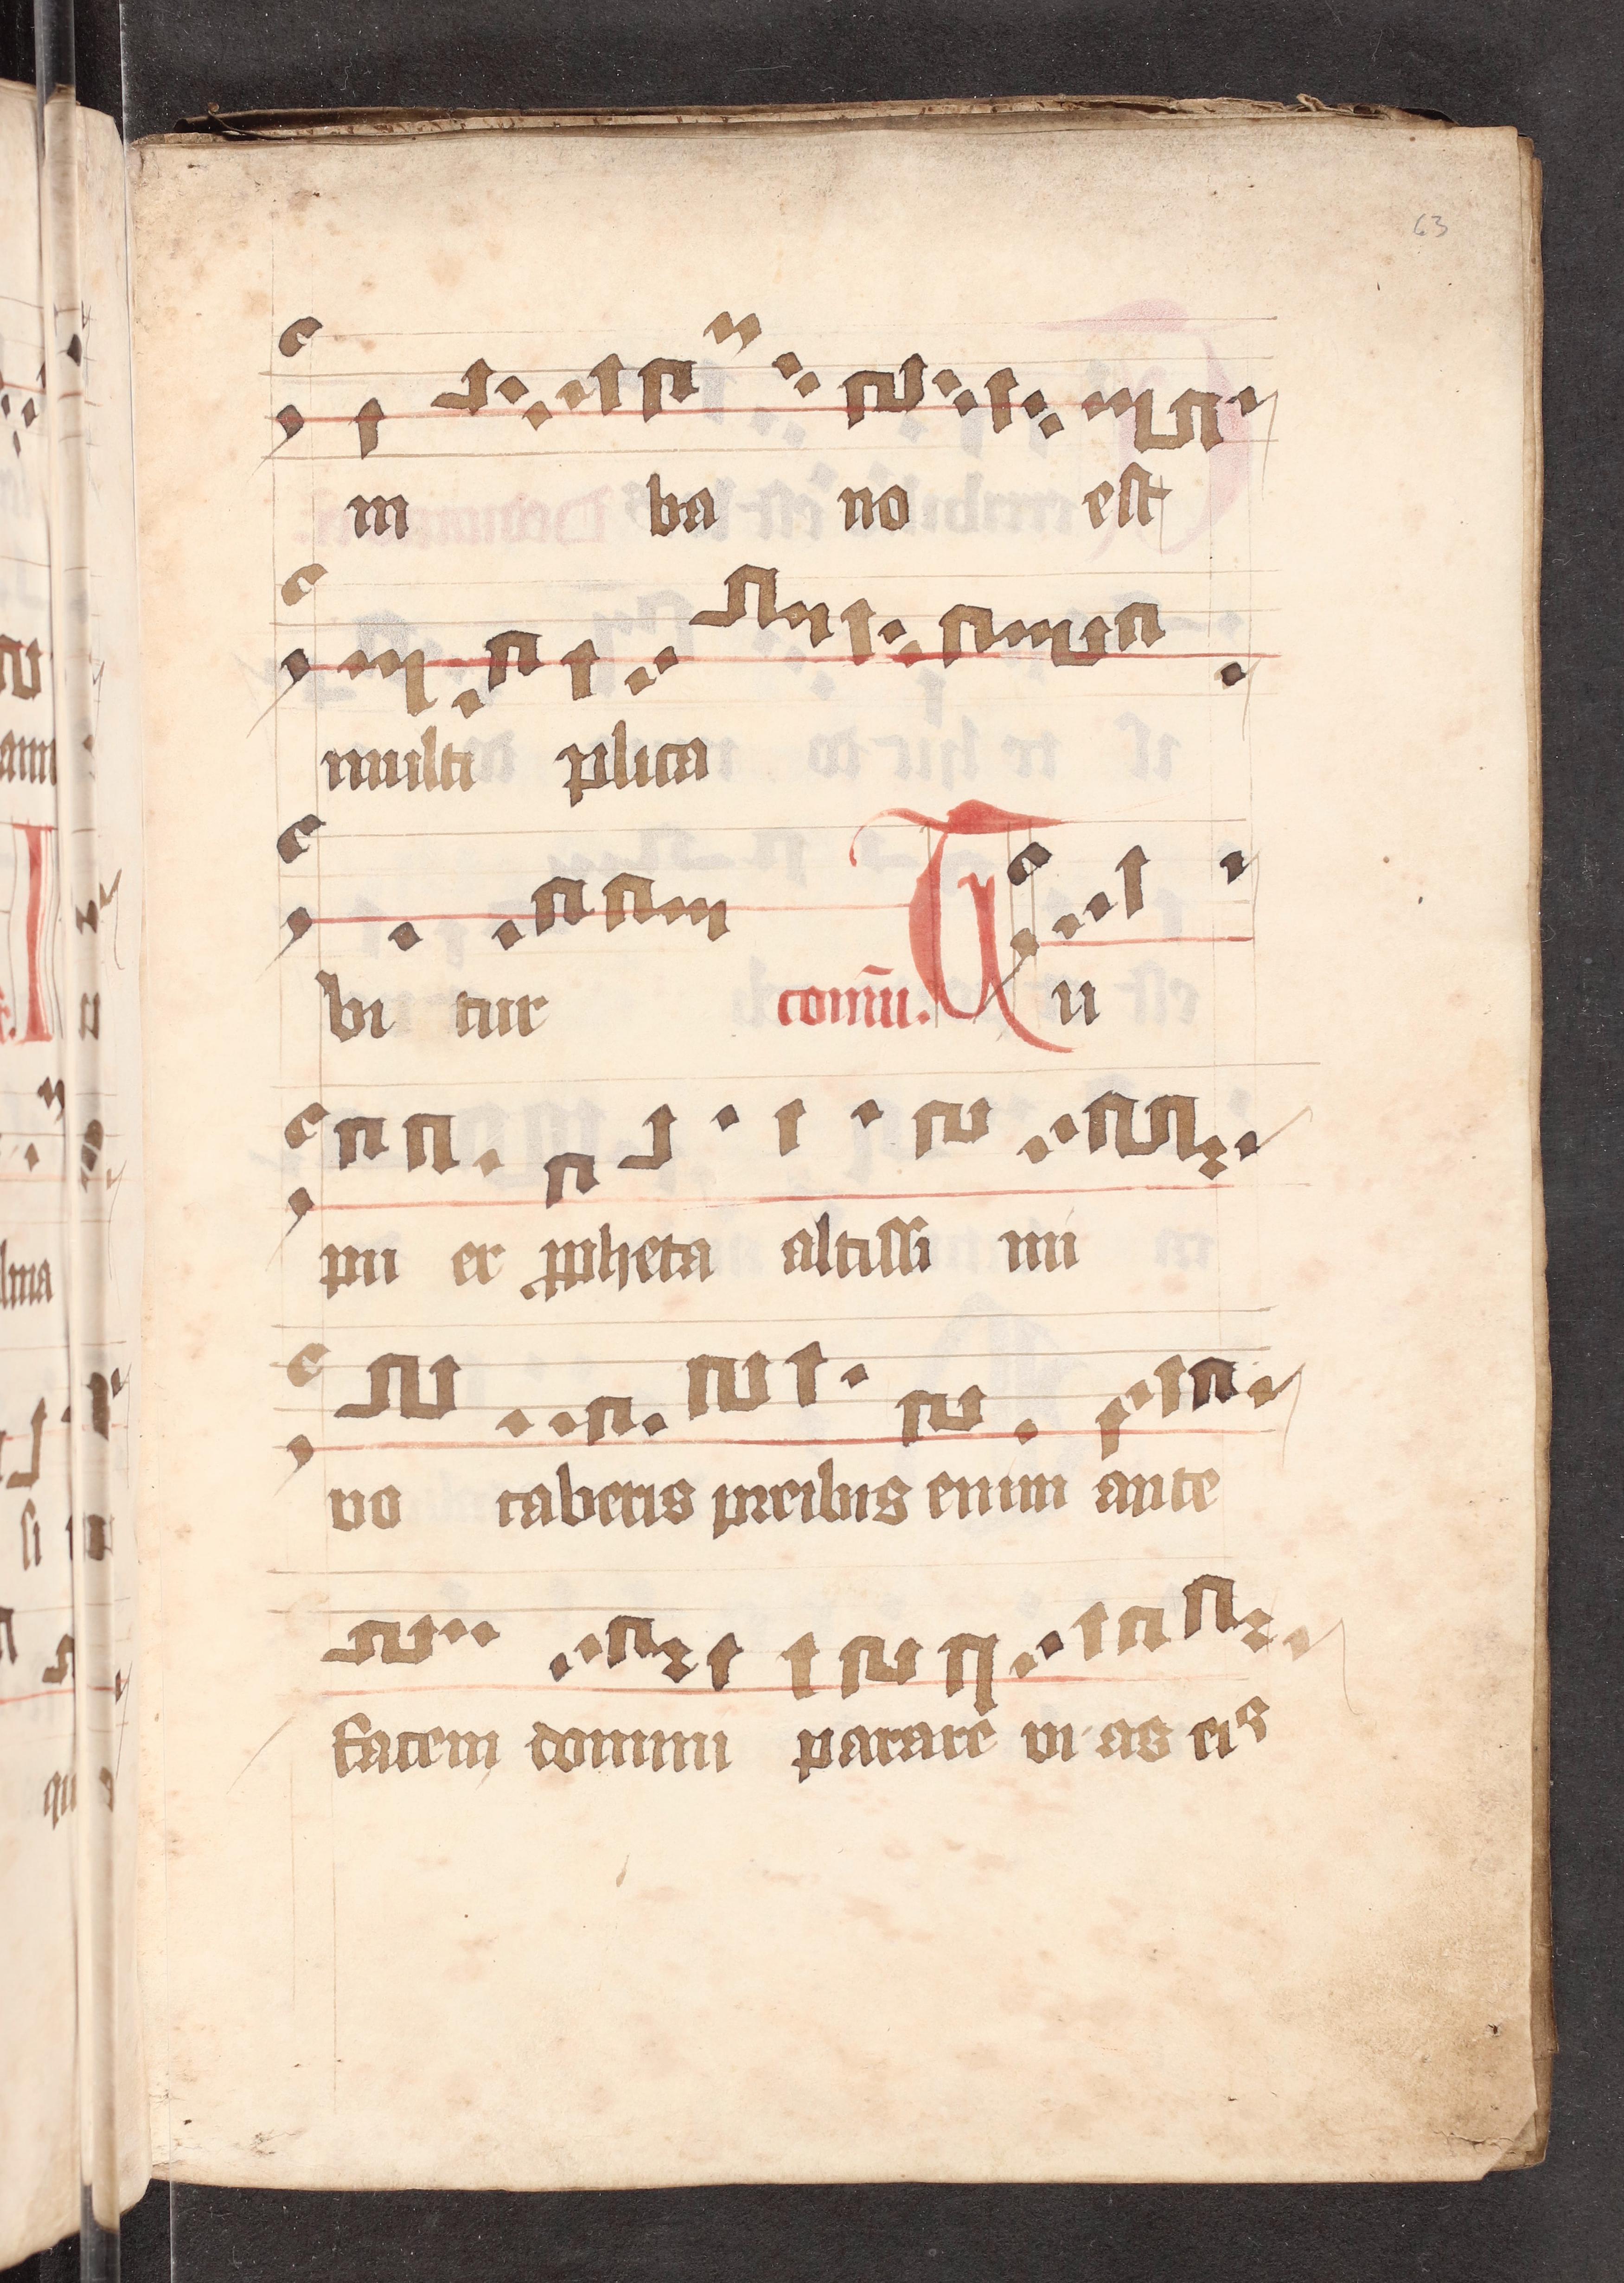 63
in ba no est
multi plica
bi tur comū. Tu
pu er ꝓpheta altissi mi
vo caberis preibis enim ante
faciem domini parare vi as eis